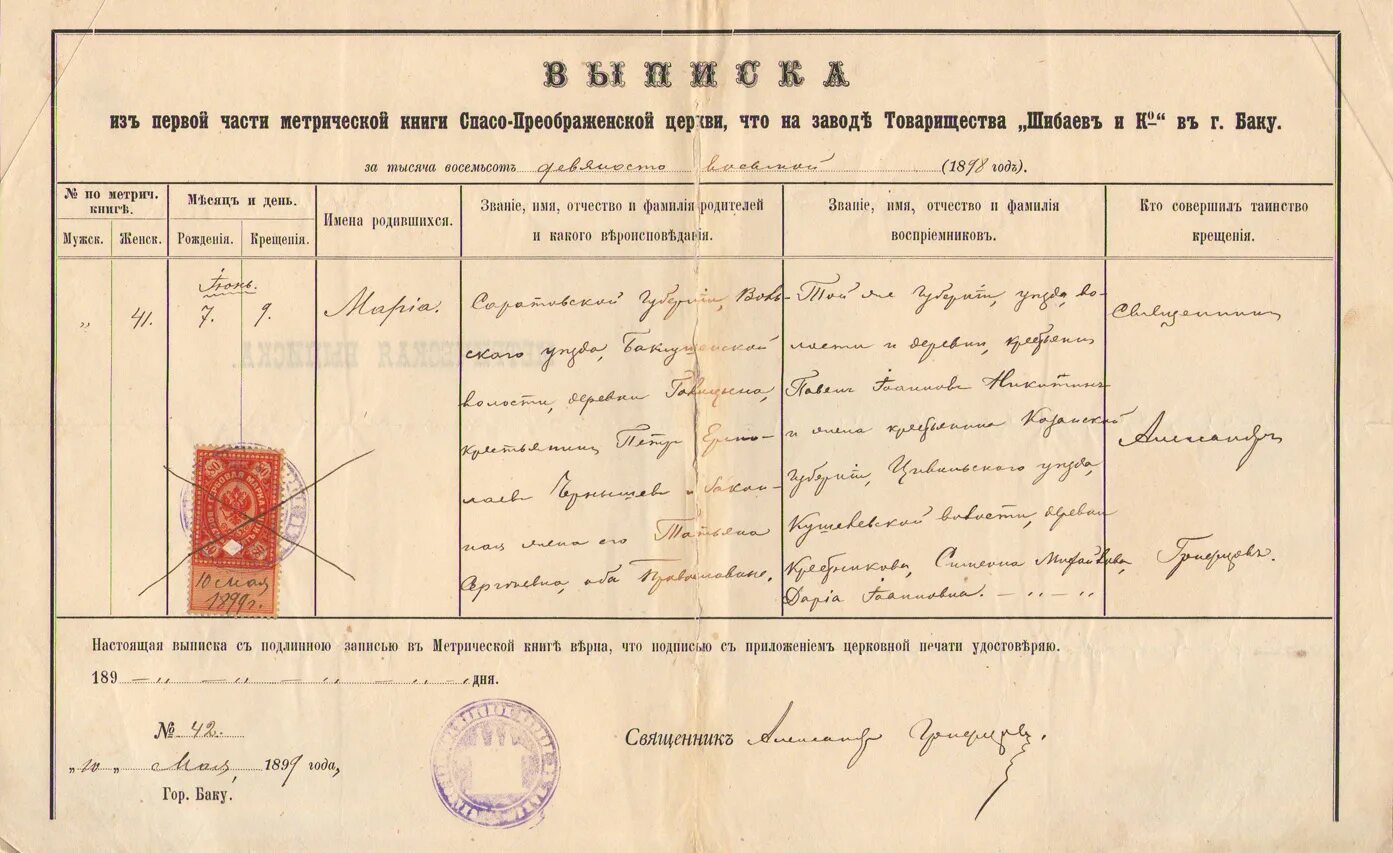 ВЫПИСКА
изъ первой части метрической книги Спасо-Преображенской церкви, что на заводѣ Товарищества „Шибаевъ и Ко“ въ г. Баку.
за тысяча восемьсотъ девяносто восьмой (1898 годъ).
№ по метрич. книгѣ.
Мужск.
Женск.
Мѣсяцъ и день.
Рожденія.
Крещенія.
Имена родившихся.
Званіе, имя, отчество и фамилія родителей
и какого вѣроисповѣданія.
Званіе, имя, отчество и фамилія
воспріемниковъ.
Кто совершилъ таинство
крещенія.
„
41.
Іюнь.
7.
9.
Марія.
Саратовской Губерніи, Воль-
скаго уѣзда,
волости, деревни
крестьянинъ Петръ Ермо-
лаевъ Чернышевъ и закон-
ная жена его Татьяна
Сергѣевна, оба Православные.
Той же Губерніи, уѣзда, во-
лости и деревни, крестьянинъ
Павелъ Іоанновъ Никитинъ
и жена крестьянина Казанской
губерніи, Цивильскаго уѣзда,
волости, деревни
Симеона
Дарія Іоанновна. — „ — „
Священникъ
Александръ
50
50
ГЕРБОВАЯ МАРКА
10 Мая
1899 г.
Настоящая выписка съ подлинною записью въ Метрической книгѣ вѣрна, что подписью съ приложеніемъ церковной печати удостовѣряю.
189 — „ — „ — „ — „ — „ дня.
№ 42.
„10„ Мая, 1899 года,
Гор. Баку.
Священникъ Александръ